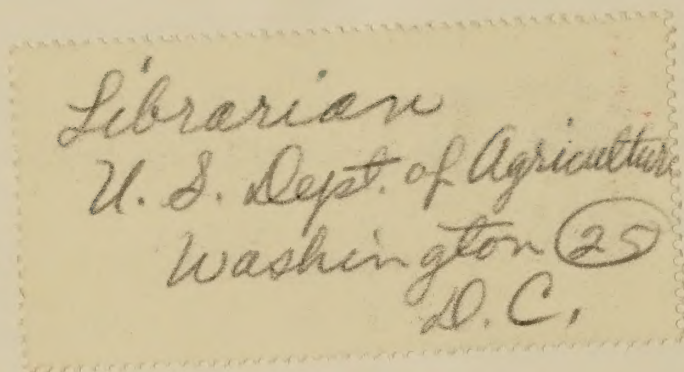 Librarian
U. S. Dept. of Agriculture
Washington 25
D. C.